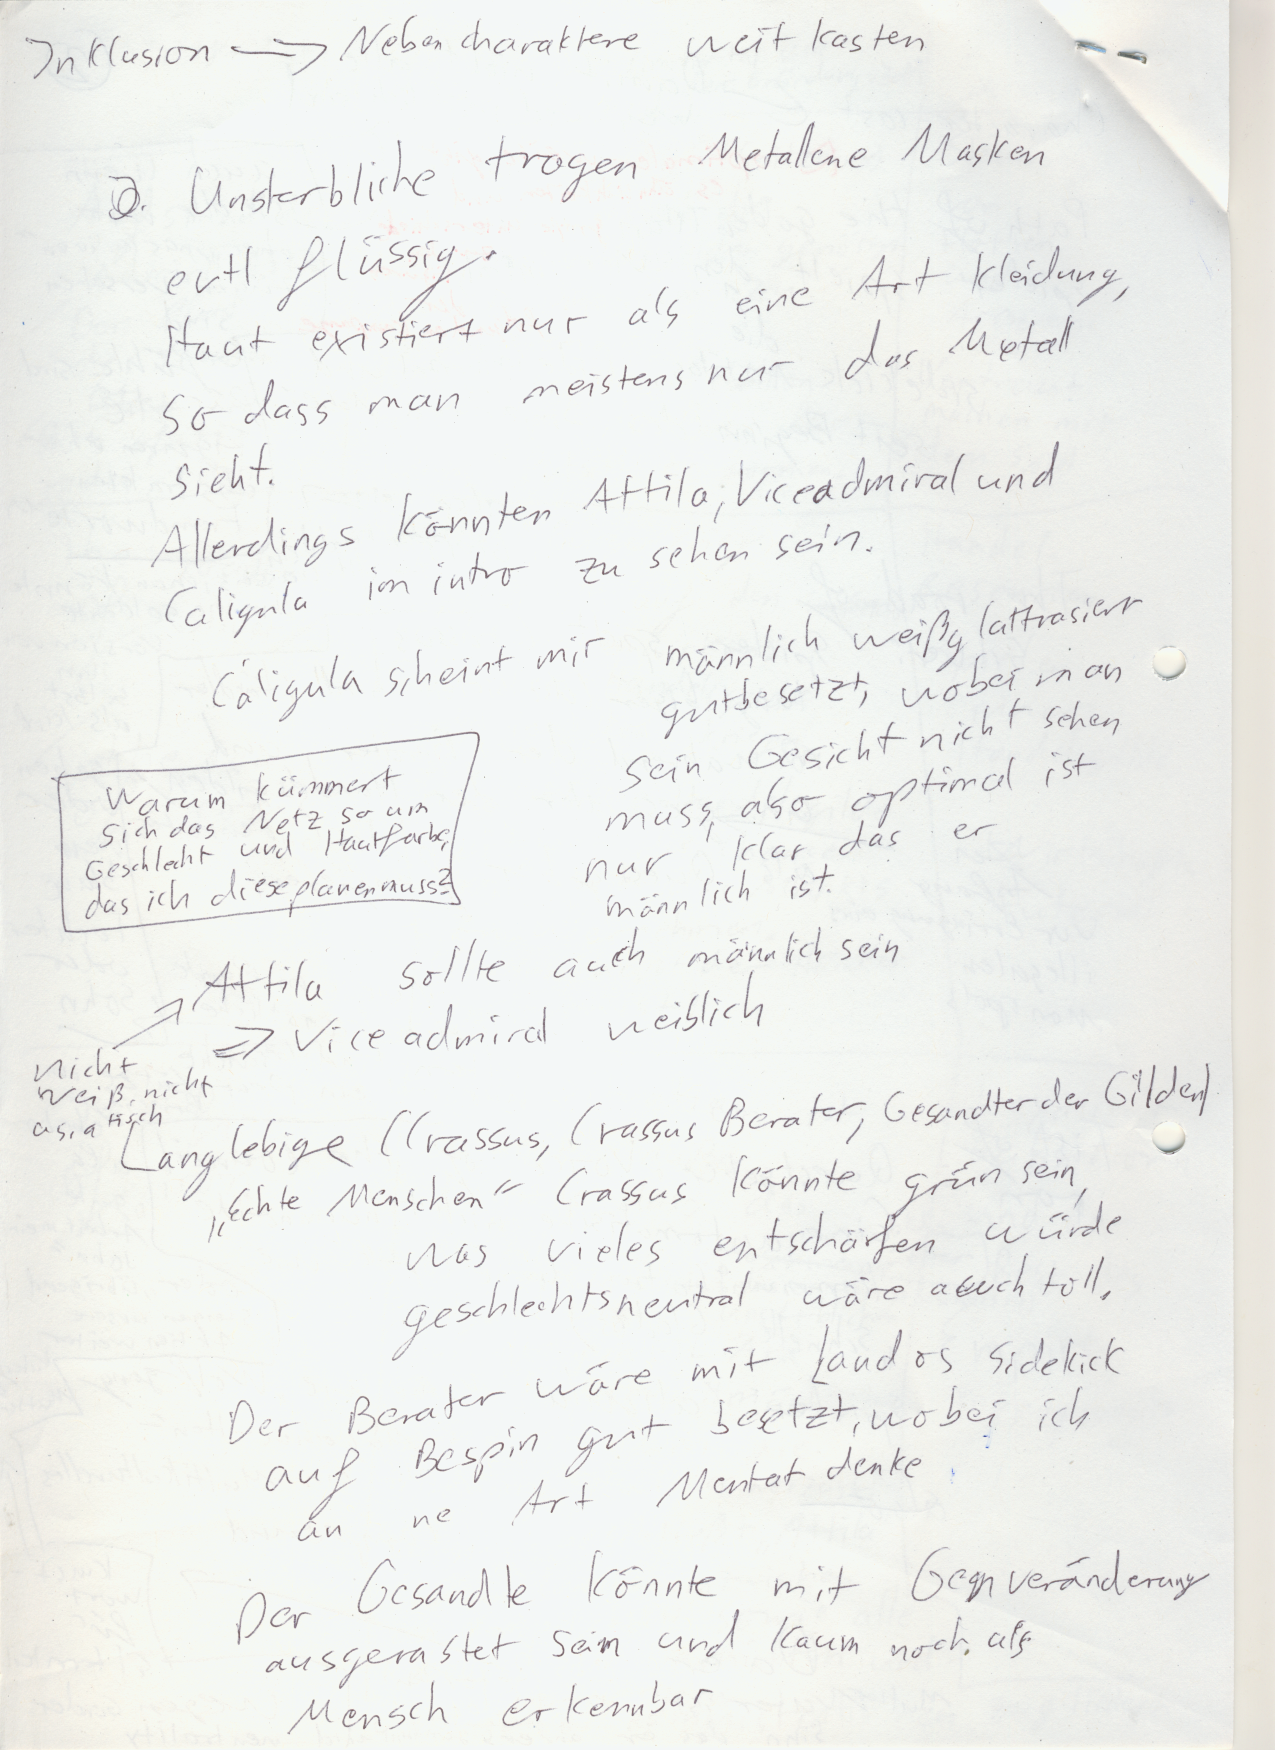 Inklusion → Nebencharaktere weit kasten
Unsterbliche tragen Metallene Masken
evtl flüssig.
Haut existiert nur als eine Art Kleidung,
so dass man meistens nur das Metall
sieht.
Allerdings könnten Attila, Viceadmiral und
Caligula im intro zu sehen sein.
Caligula scheint mir männlich weiß glattrasiert
gut besetzt, wobei man
sein Gesicht nicht sehen
muss, also optimal ist
nur klar das er
männlich ist.
Warum kümmert
sich das Netz so um
Geschlecht und Hautfarbe,
das ich diese planen muss?
Attila sollte auch männlich sein
⇒ Viceadmiral weiblich
nicht
weiß, nicht
asiatisch
Langlebige (Crassus, Crassus Berater, Gesandter der Gilden)
"Echte Menschen" Crassus könnte grün sein,
was vieles entschärfen würde
geschlechtsneutral wäre auch toll.
Der Berater wäre mit Landos Sidekick
auf Bespin gut besetzt, wobei ich
an ne Art Mentat denke
Der Gesandte könnte mit Genveränderung
ausgerastet sein und kaum noch als
Mensch erkennbar